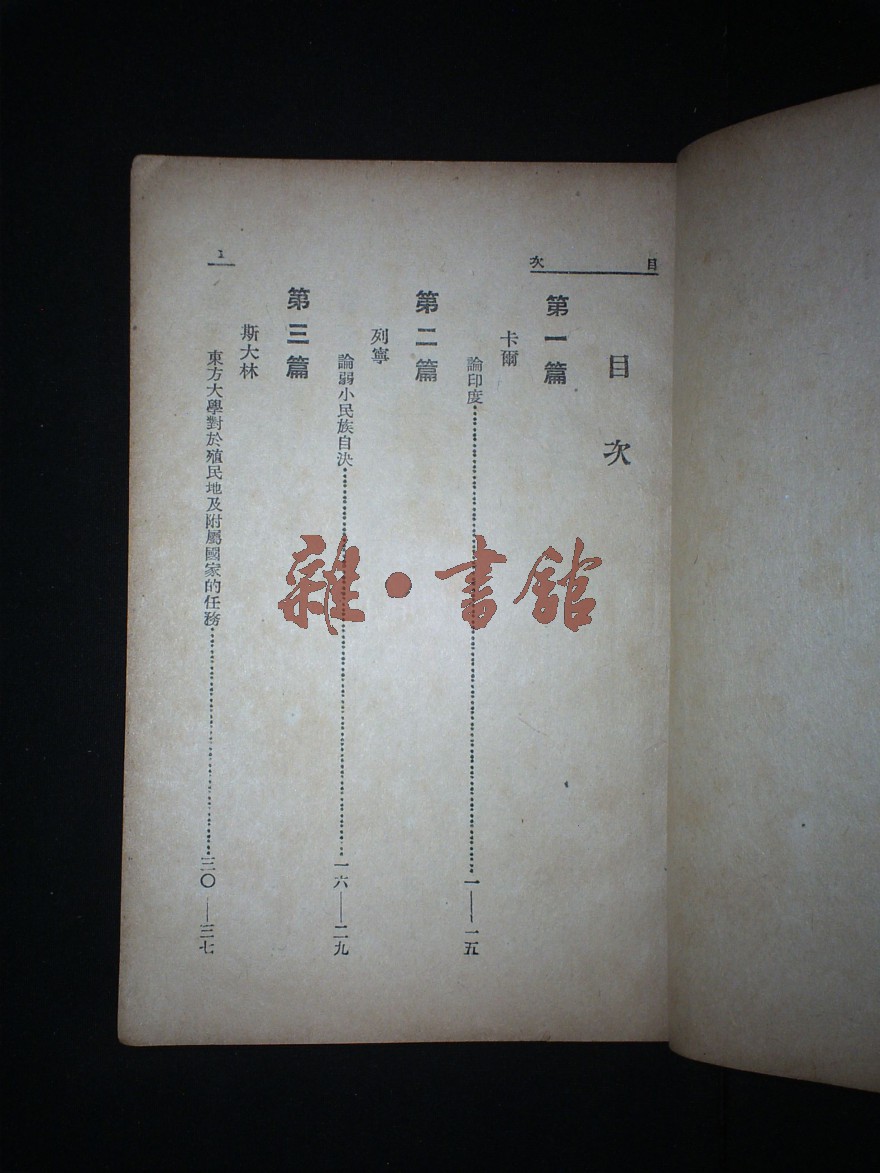 目次
目次
第一篇
卡爾
論印度……一——一五
第二篇
列寧
論弱小民族自決……一六——二九
第三篇
斯大林
東方大學對於殖民地及附屬國家的任務……三〇——三七
1
雜·書館